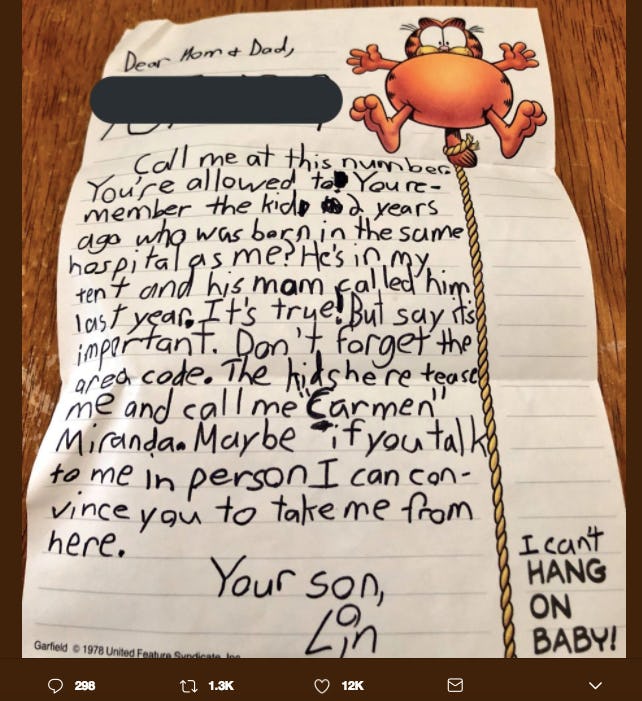 Dear Mom & Dad,
Call me at this number
You're allowed to. You re-
member the kid 2 years
ago who was born in the same
hospital as me? He's in my
tent and his mam called him
last year. It's true! But say it's
important. Don't forget the
area code. The kids here tease
me and call me "Carmen"
Miranda. Maybe if you talk
to me in person I can con-
vince you to take me from
here.
Your son,
Lin
I can't
HANG
ON
BABY!
Garfield © 1978 United Feature Syndicate, Inc.
298 1.3K 12K